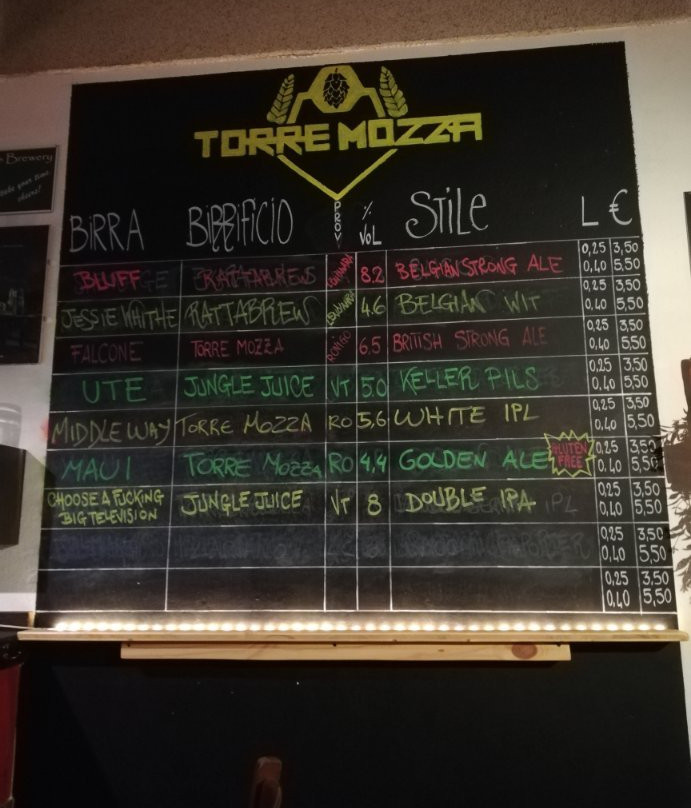 Brewery
TORRE MOZZA
BiRRA BiRRiFiCiO PROV. % VOL STiLE L €
BLUFF RATTABREW 8.2 BELGIAN STRONG ALE 0,25 3,50
0,40 5,50
JESSIE WHITHE RATTABREW 4.6 BELGIAN WIT 0,25 3,50
0,40 5,50
FALCONE TORRE MOZZA ROViGO 6,5 BRITISH STRONG ALE 0,25 3,50
0,40 5,50
UTE JUNGLE JUICE VT 5.0 KELLER PILS 0,25 3,50
0,40 5,50
MIDDLE WAY TORRE MOZZA RO 5,6 WHITE IPL 0,25 3,50
0,40 5,50
MAUI TORRE MOZZA RO 4,4 GOLDEN ALE GLUTEN FREE 0,25 3,50
0,40 5,50
CHOOSE A FUCKING BIG TELEVISION JUNGLE JUICE VT 8 DOUBLE IPA 0,25 3,50
0,40 5,50
0,25 3,50
0,40 5,50
0,25 3,50
0,40 5,50